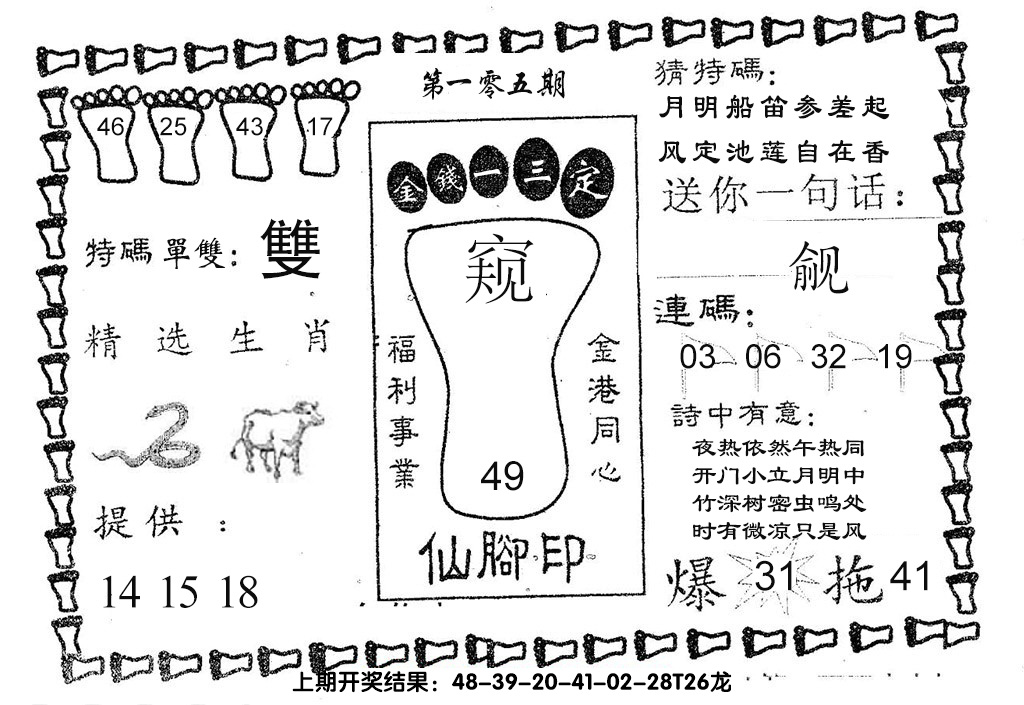 第一零五期
46 25 43 17
特碼單雙：雙
精选生肖
提供：
14 15 18
金錢一三定
窥
福利事業
金港同心
49
仙腳印
猜特碼：
月明船笛参差起
风定池莲自在香
送你一句话：
觎
連碼：
03 06 32 19
詩中有意：
夜热依然午热同
开门小立月明中
竹深树密虫鸣处
时有微凉只是风
爆 31 拖 41
上期开奖结果：48-39-20-41-02-28T26龙